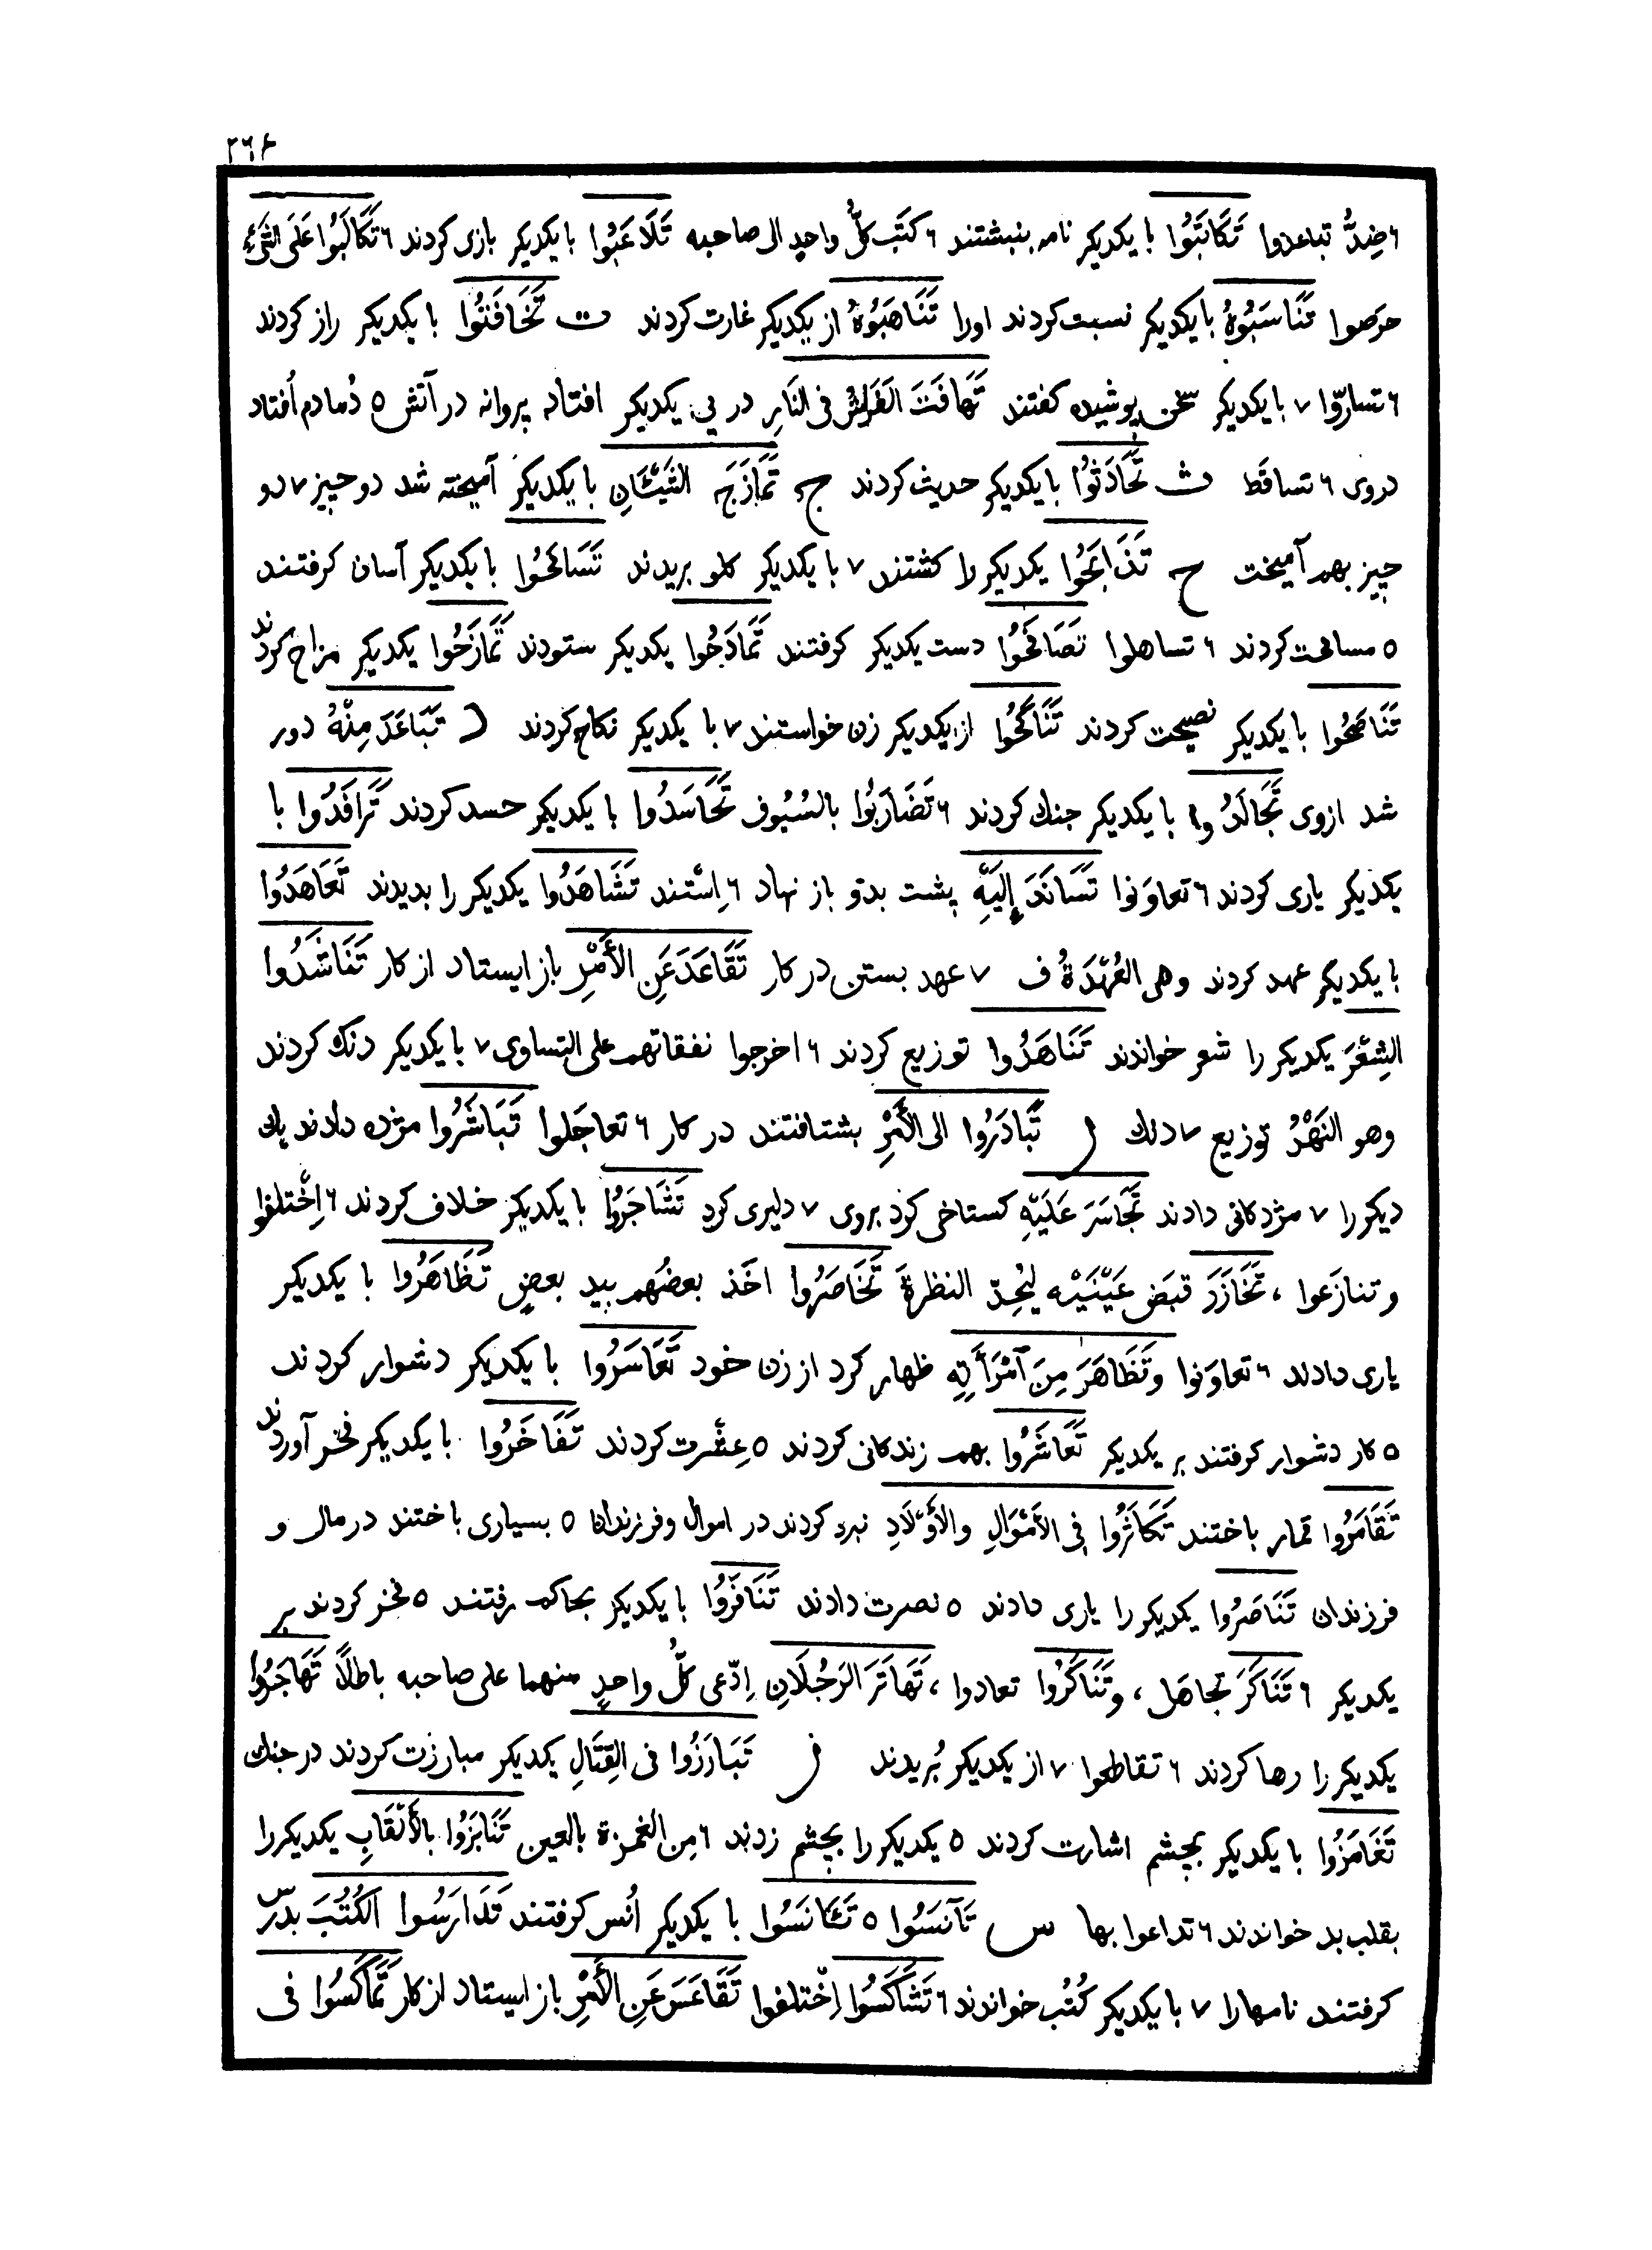 ٢٦٤
٦ ضِدُّ تباعدوا تَكَاتَبُوا با يكديكر نامه بنبشتند ٦ كتَب كلُّ واحدٍ الى صاحبه تَلَاعَبُوا با يكديكر بازى كردند ٦ تَكَالَبُوا عَلَى الشَّىْءِ
حرَصوا تَنَاسَبُوهُ با يكديكر نسبت كردند اورا تَنَاهَبُوهُ از يكديكر غارت كردند ت تَخَافَتُوا با يكديكر راز كردند
٦ تسارّوا ٧ با يكديكر سخن پوشيده كفتند تَهَافَتَ الفَرَاشُ فى النَّارِ در پىِ يكديكر افتاد پروانه در آتش ٥ دُمادم اُفتاد
دروى ٦ تساقَط ث تَحَادَثُوا با يكديكر حديث كردند ج تَمَازَجَ الشَّيْئَانِ با يكديكر آميخته شد دو چيز ٧ دو
چيز بهم آميخت ح تَذَابَحُوا يكديكر را كشتند ٧ با يكديكر كلو بريدند تَسَامَحُوا با يكديكر آسان كرفتند
٥ مسامحت كردند ٦ تساهلوا تَصَافَحُوا دست يكديكر كرفتند تَمَادَحُوا يكديكر ستودند تَمَازَحُوا يكديكر مزاح كردند
تَنَاصَحُوا با يكديكر نصيحت كردند تَنَاكَحُوا از يكديكر زن خواستند ٧ با يكديكر نكاح كردند د تَبَاعَدَ مِنْهُ دور
شد ازوى تَجَالَدُوا با يكديكر جنك كردند ٦ تَضَارَبُوا بالسُيُوف تَحَاسَدُوا با يكديكر حسد كردند تَرَافَدُوا با
يكديكر يارى كردند ٦ تعاوَنوا تَسَانَدَ إِلَيْهِ پشت بدو باز نهاد ٦ اِسْتند تَشَاهَدُوا يكديكر را بديدند تَعَاهَدُوا
با يكديكر عهد كردند وهى العُهْدَةُ ف ٧ عهد بستن در كار تَقَاعَدَ عَنِ الأَمْرِ باز ايستاد از كار تَنَاشَدُوا
الشِعْرَ يكديكر را شعر خواندند تَنَاهَدُوا توزيع كردند ٦ اخرجوا نفقاتهم على التساوى ٧ با يكديكر دنك كردند
وهو النَهْدُ توزيع ٧ دنك ر تَبَادَرُوا الى الأَمْرِ بشتافتند در كار ٦ تعاجَلوا تَبَاشَرُوا مژده دادند يك
ديكر را ٧ مژدكانى دادند تَجَاسَرَ عَلَيْهِ كستاخى كرد بروى ٧ دليرى كرد تَشَاجَرُوا با يكديكر خلاف كردند ٦ اِخْتلفوا
و تنازَعوا ، تَخَازَرَ قبَض عَيْنَيْه ليُحِدّ النظرةَ تَخَاصَرُوا اخَذ بعضُهم بيد بعضٍ تَظَاهَرُوا با يكديكر
يارى دادند ٦ تعاوَنوا وتَظَاهَرَ مِنَ ٱمْرَأَتِهِ ظهار كرد از زن خود تَعَاسَرُوا با يكديكر دشوار كردند
٥ كار دشوار كرفتند بر يكديكر تَعَاشَرُوا بهم زندكانى كردند ٥ عِشْرت كردند تَفَاخَرُوا با يكديكر فخر آوردند
تَقَامَرُوا قمار باختند تَكَاثَرُوا فِى الأَمْوَالِ والأَوْلَادِ نبرد كردند در اموال وفرزندان ٥ بسيارى باختند در مال و
فرزندان تَنَاصَرُوا يكديكر را يارى دادند ٥ نصرت دادند تَنَافَرُوا با يكديكر بحاكم رفتند ٥ فخر كردند بر
يكديكر ٦ تَنَاكَرَ تجاهَل ، وتَنَاكَرُوا تعادوا ، تَهَاتَرَ الرَجُلَانِ اِدّعى كلُّ واحدٍ منهما على صاحبه باطلًا تَهَاجَرُوا
يكديكر را رها كردند ٦ تقاطعوا ٧ از يكديكر بُريدند ز تَبَارَزُوا فى القِتَالِ يكديكر مبارزت كردند در جنك
تَغَامَزُوا با يكديكر بچشم اشارت كردند ٥ يكديكر را بچشم زدند ٦ مِن الغَمزة بالعين تَنَابَزُوا بالأَلْقَابِ يكديكررا
بقلب بد خواندند ٦ تداعوا بها س تَآنَسُوا ٥ تَئَانَسُوا با يكديكر اُنس كرفتند تَدَارَسُوا الكُتُبَ بدرس
كرفتند نامهارا ٧ با يكديكر كُتُب خواندند ٦ تَشَاكَسُوا اِخْتلفوا تَقَاعَسَ عَنِ الأَمْرِ باز ايستاد از كار تَمَاكَسُوا فى